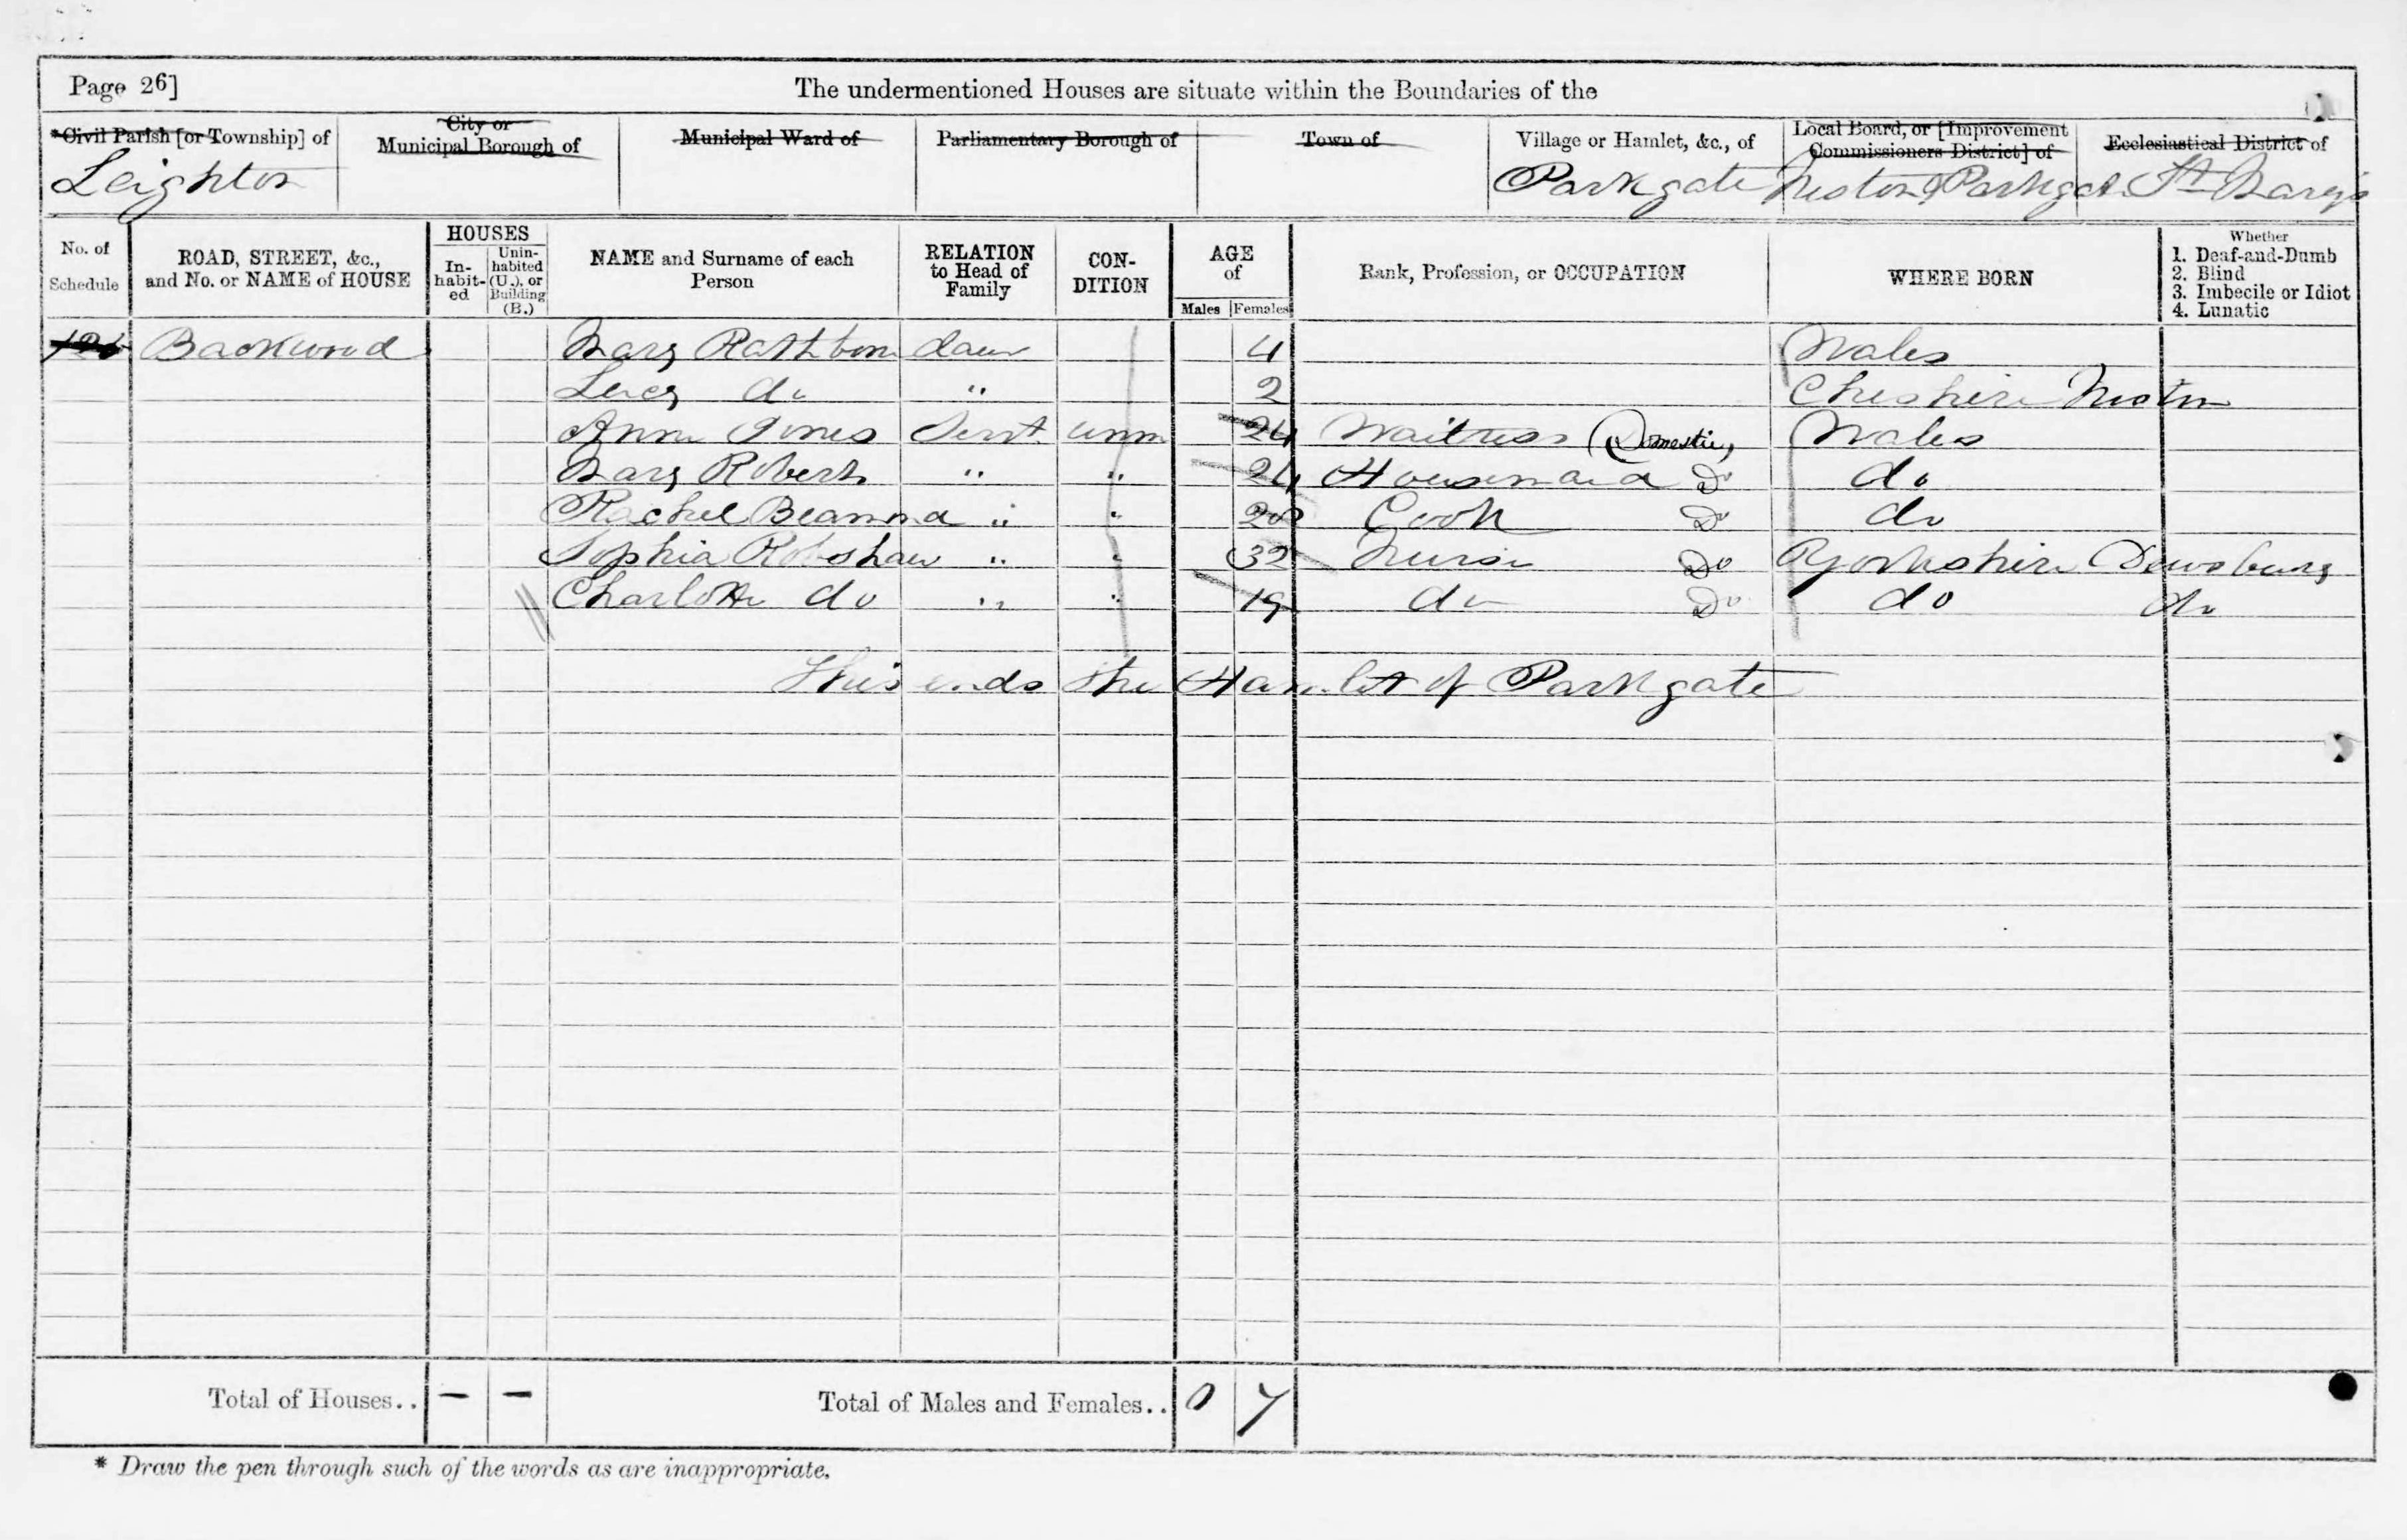 Page 26]
The undermentioned Houses are situate within the Boundaries of the
*Civil Parish [or Township] of
City or Municipal Borough of
Municipal Ward of
Parliamentary Borough of
Town of
Village or Hamlet, &c., of
Local Board, or [Improvement Commissioners District] of
Ecclesiastical District of
Leighton Parkgate Neston & Parkgate St Mary's
No. of Schedule
ROAD, STREET, &c., and No. or NAME of HOUSE
HOUSES
In-habit-ed
Unin-habited (U.), or Building (B.)
NAME and Surname of each Person
RELATION to Head of Family
CON-DITION
AGE of
Males Females
Rank, Profession, or OCCUPATION
WHERE BORN
Whether
1. Deaf-and-Dumb
2. Blind
3. Imbecile or Idiot
4. Lunatic
Backwood Mary Rathbone daur 4 Wales
Lucy do " 2 Cheshire Neston
Ann Jones Servt unm 24 Waitress (Domestic) Wales
Mary Roberts " " 24 Housemaid Do do
Rachel " " 28 Cook Do do
Sophia Robshaw " " 32 Nurse Do Yorkshire Dewsbury
Charlotte do " " 19 do Do do do
This ends the Hamlet of Parkgate
Total of Houses.. — — Total of Males and Females.. 0 7
* Draw the pen through such of the words as are inappropriate.